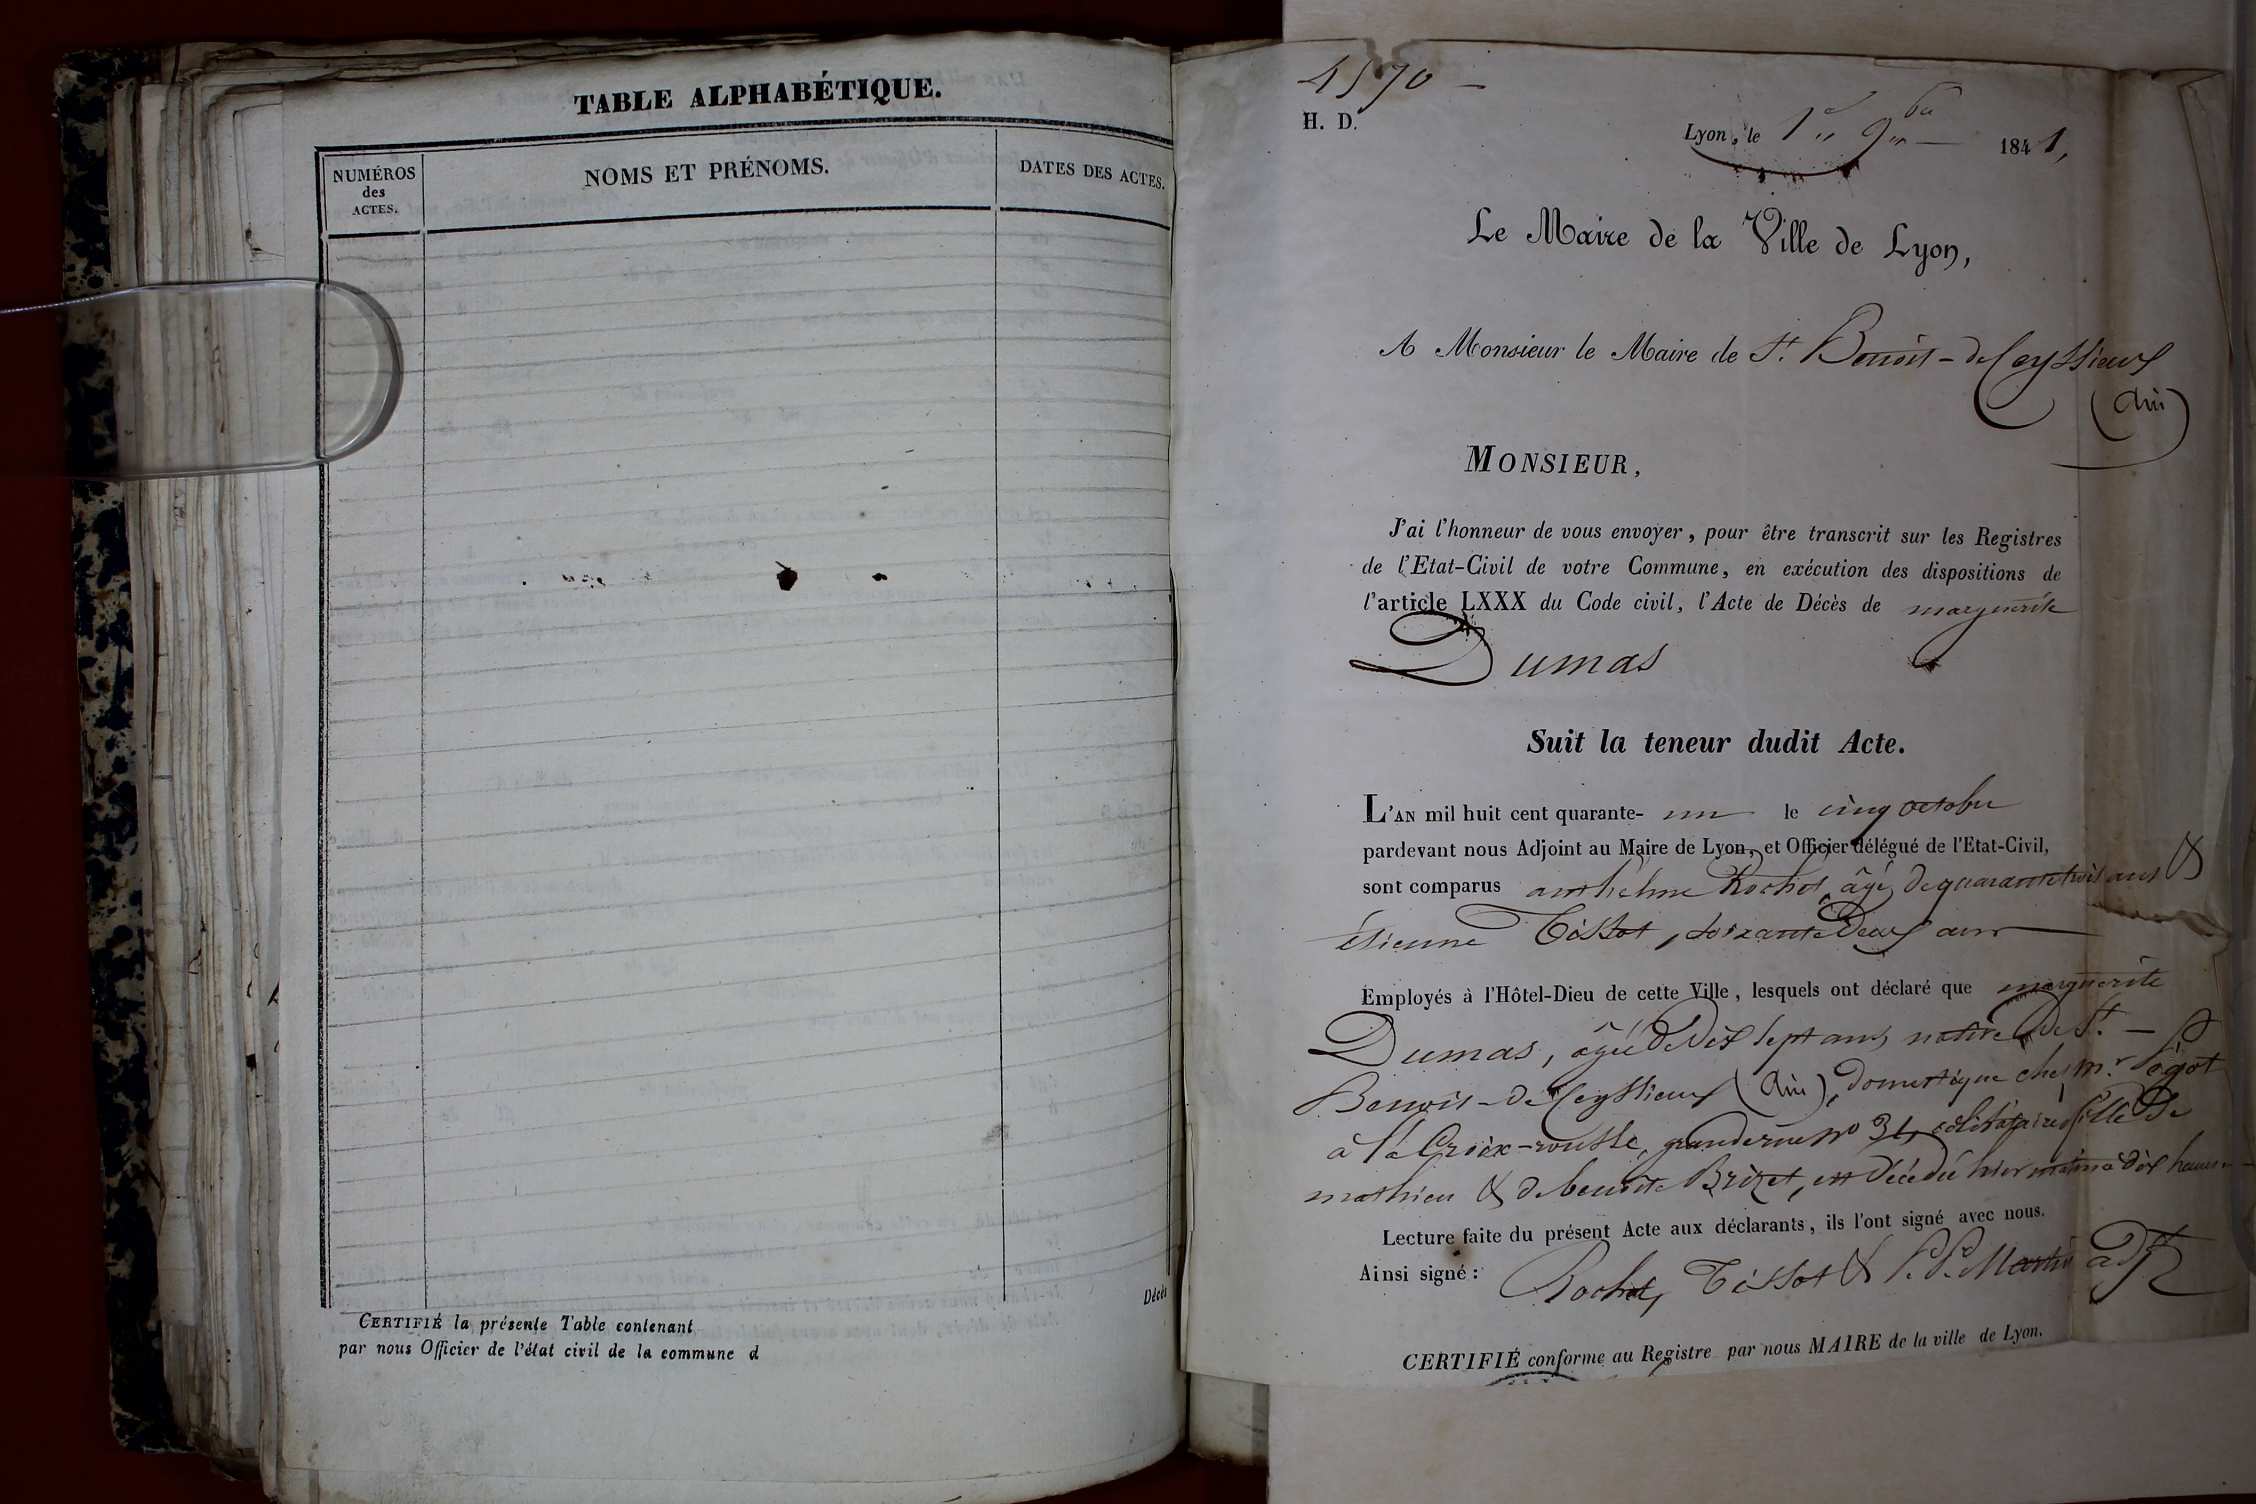 TABLE ALPHABÉTIQUE.
NUMÉROS
des
ACTES.
NOMS ET PRÉNOMS.
DATES DES ACTES.
Décès
CERTIFIÉ la présente Table contenant
par nous Officier de l'état civil de la commune d
4570 -
H. D.
Lyon, le 1er 9bre 1841,
Le Maire de la Ville de Lyon,
A Monsieur le Maire de St. Benoit-de Ceyssieux
(Ain)
MONSIEUR,
J'ai l'honneur de vous envoyer, pour être transcrit sur les Registres
de l'Etat-Civil de votre Commune, en exécution des dispositions de
l'article LXXX du Code civil, l'Acte de Décès de marguerite
Dumas
Suit la teneur dudit Acte.
L'AN mil huit cent quarante- un le cinq octobre
pardevant nous Adjoint au Maire de Lyon, et Officier délégué de l'Etat-Civil,
sont comparus anthelme Rochet, âgé de quarante trois ans &
étienne Tissot, soixante deux ans
Employés à l'Hôtel-Dieu de cette Ville, lesquels ont déclaré que marguerite
Dumas, âgée de dix sept ans, native de St. -
Benoit-de Ceyssieux (Ain), domestique chez mr.
à la Croix-rousse, grande rue no 31, célibataire, fille de
mathieu & de benoite Brizet, est décédée hier matin à dix heures
Lecture faite du présent Acte aux déclarants, ils l'ont signé avec nous.
Ainsi signé: Rochet, Tissot & Martin adjt
CERTIFIÉ conforme au Registre par nous MAIRE de la ville de Lyon.